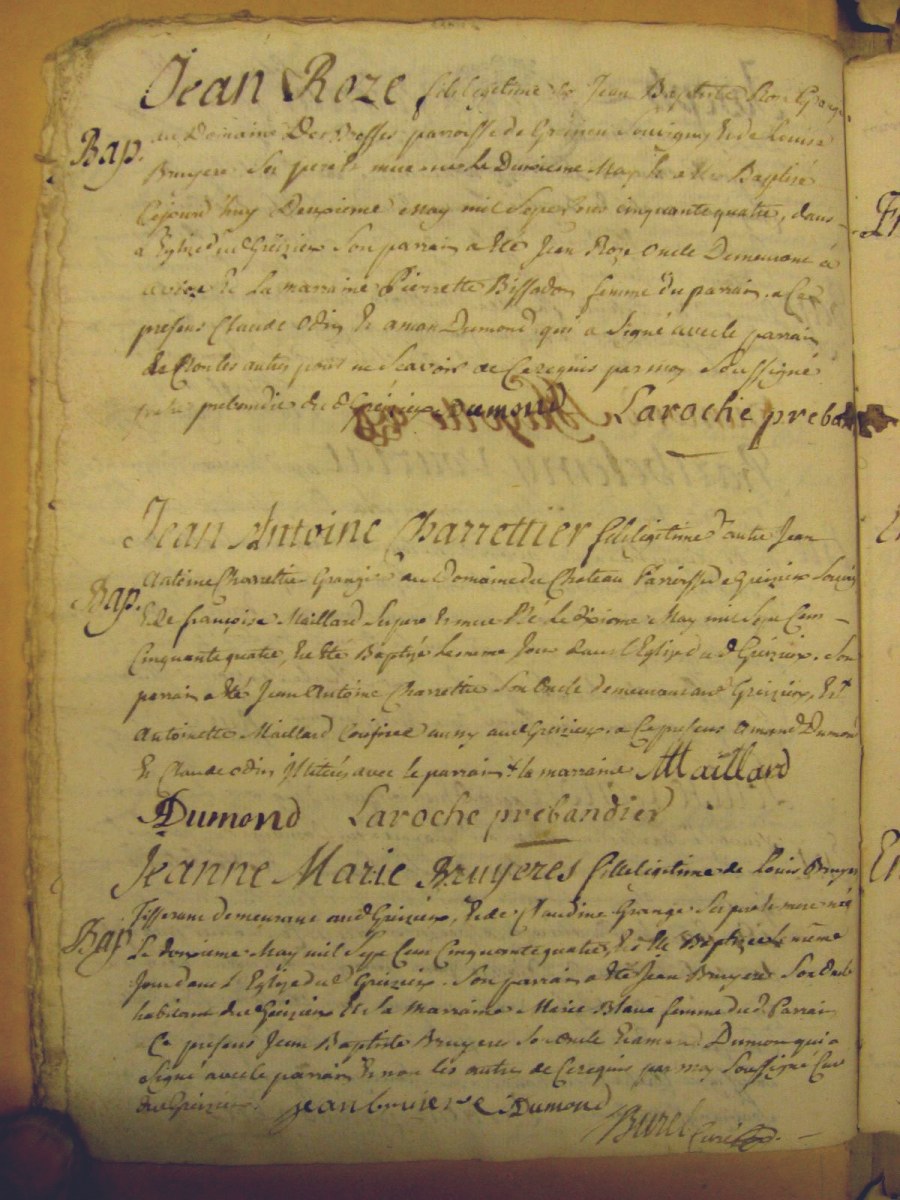 Jean Roze fils legitime de Jean Baptiste Roze Granger
Bap.
au Domaine Des Fosses parroisse de Grézieu Souvigny & de Louise
Bruyere Ses pere & mere né Le May & a été Baptisé
Cejourd'huy Deuxieme May mil Sept Cens cinquante quatre, dans
l'Eglise du d Grézieu Son parrain a été Jean Roze Oncle Demeurant à
& La marraine Pierrette Bissadon femme du parrain, a Ce
presens Claude Odin & aman Dumond qui a Signé avec le parrain
& non les autres pour ne Scavoir de Ce requis par moy Soussigné
prebandier du d Grézieu Dumond Laroche preban
Jean Antoine Charrettier fils legitime d'autre Jean
Bap.
Antoine Charrettier Granger au Domaine du Chateau Parroisse de Grezieu Souvig
& de françoise Maillard Ses pere & mere Né Le dixieme May mil Sept Cens
Cinquante quatre, & a été Baptisé le meme Jour dans l'Eglise du d Grézieu. Son
parrain a été Jean Antoine Charrettier Son Oncle demeurant au d Grézieu, & sa
Antoinette Maillard aussy au d Grézieu. a Ce presens Amand Dumond
& Claude Odin avec le parrain & la marraine Maillard
Dumond Laroche prebandier
Jeanne Marie Bruyeres fille legitime de Louis Bruyer
Tisserant demeurant au d Grézieu, & de Claudine Grange Ses pere & mere née
Bap
Le May mil Sept Cens Cinquante quatre, & a été Baptisée le même
Jour dans L'Eglise du d Grézieu. Son parrain a été Jean Bruyere Son Oncle
habitant du d Grézieu & la Marraine Marie Blanc femme du d. Parrain
a Ce presens Jean Baptiste Bruyeres Son Oncle & amand Dumon qui a
Signé avec le parrain & non les autres de Ce requis par moy Soussigné Curé
du d Grézieu. jean bruiere Dumond
Burel Curé